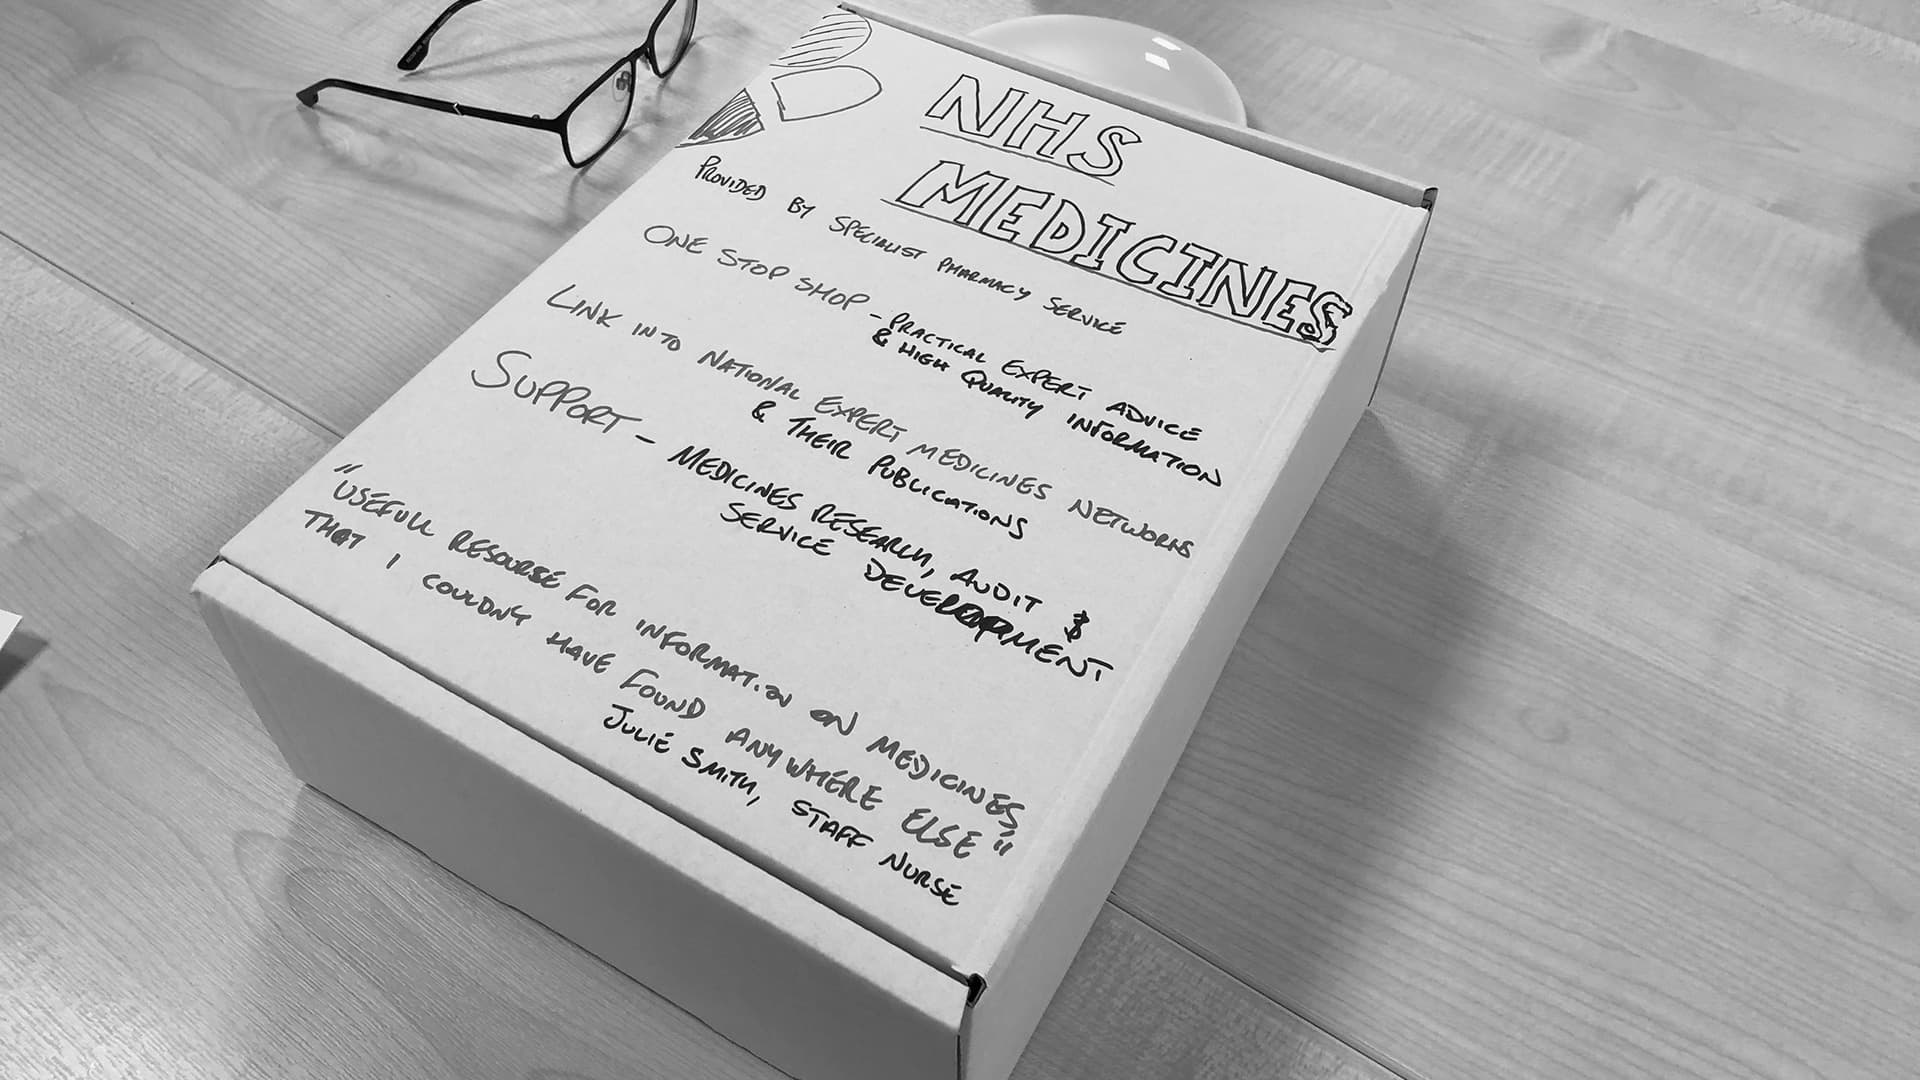 NHS
MEDICINES
PROVIDED BY SPECIALIST PHARMACY SERVICE
ONE STOP SHOP - PRACTICAL EXPERT ADVICE
& HIGH QUALITY INFORMATION
LINK INTO NATIONAL EXPERT MEDICINES NETWORKS
& THEIR PUBLICATIONS
SUPPORT - MEDICINES RESEARCH, AUDIT &
SERVICE DEVELOPMENT
"USEFULL RESOURSE FOR INFORMATION ON MEDICINES,
THAT I COULDNT HAVE FOUND ANYWHERE ELSE"
JULIE SMITH, STAFF NURSE